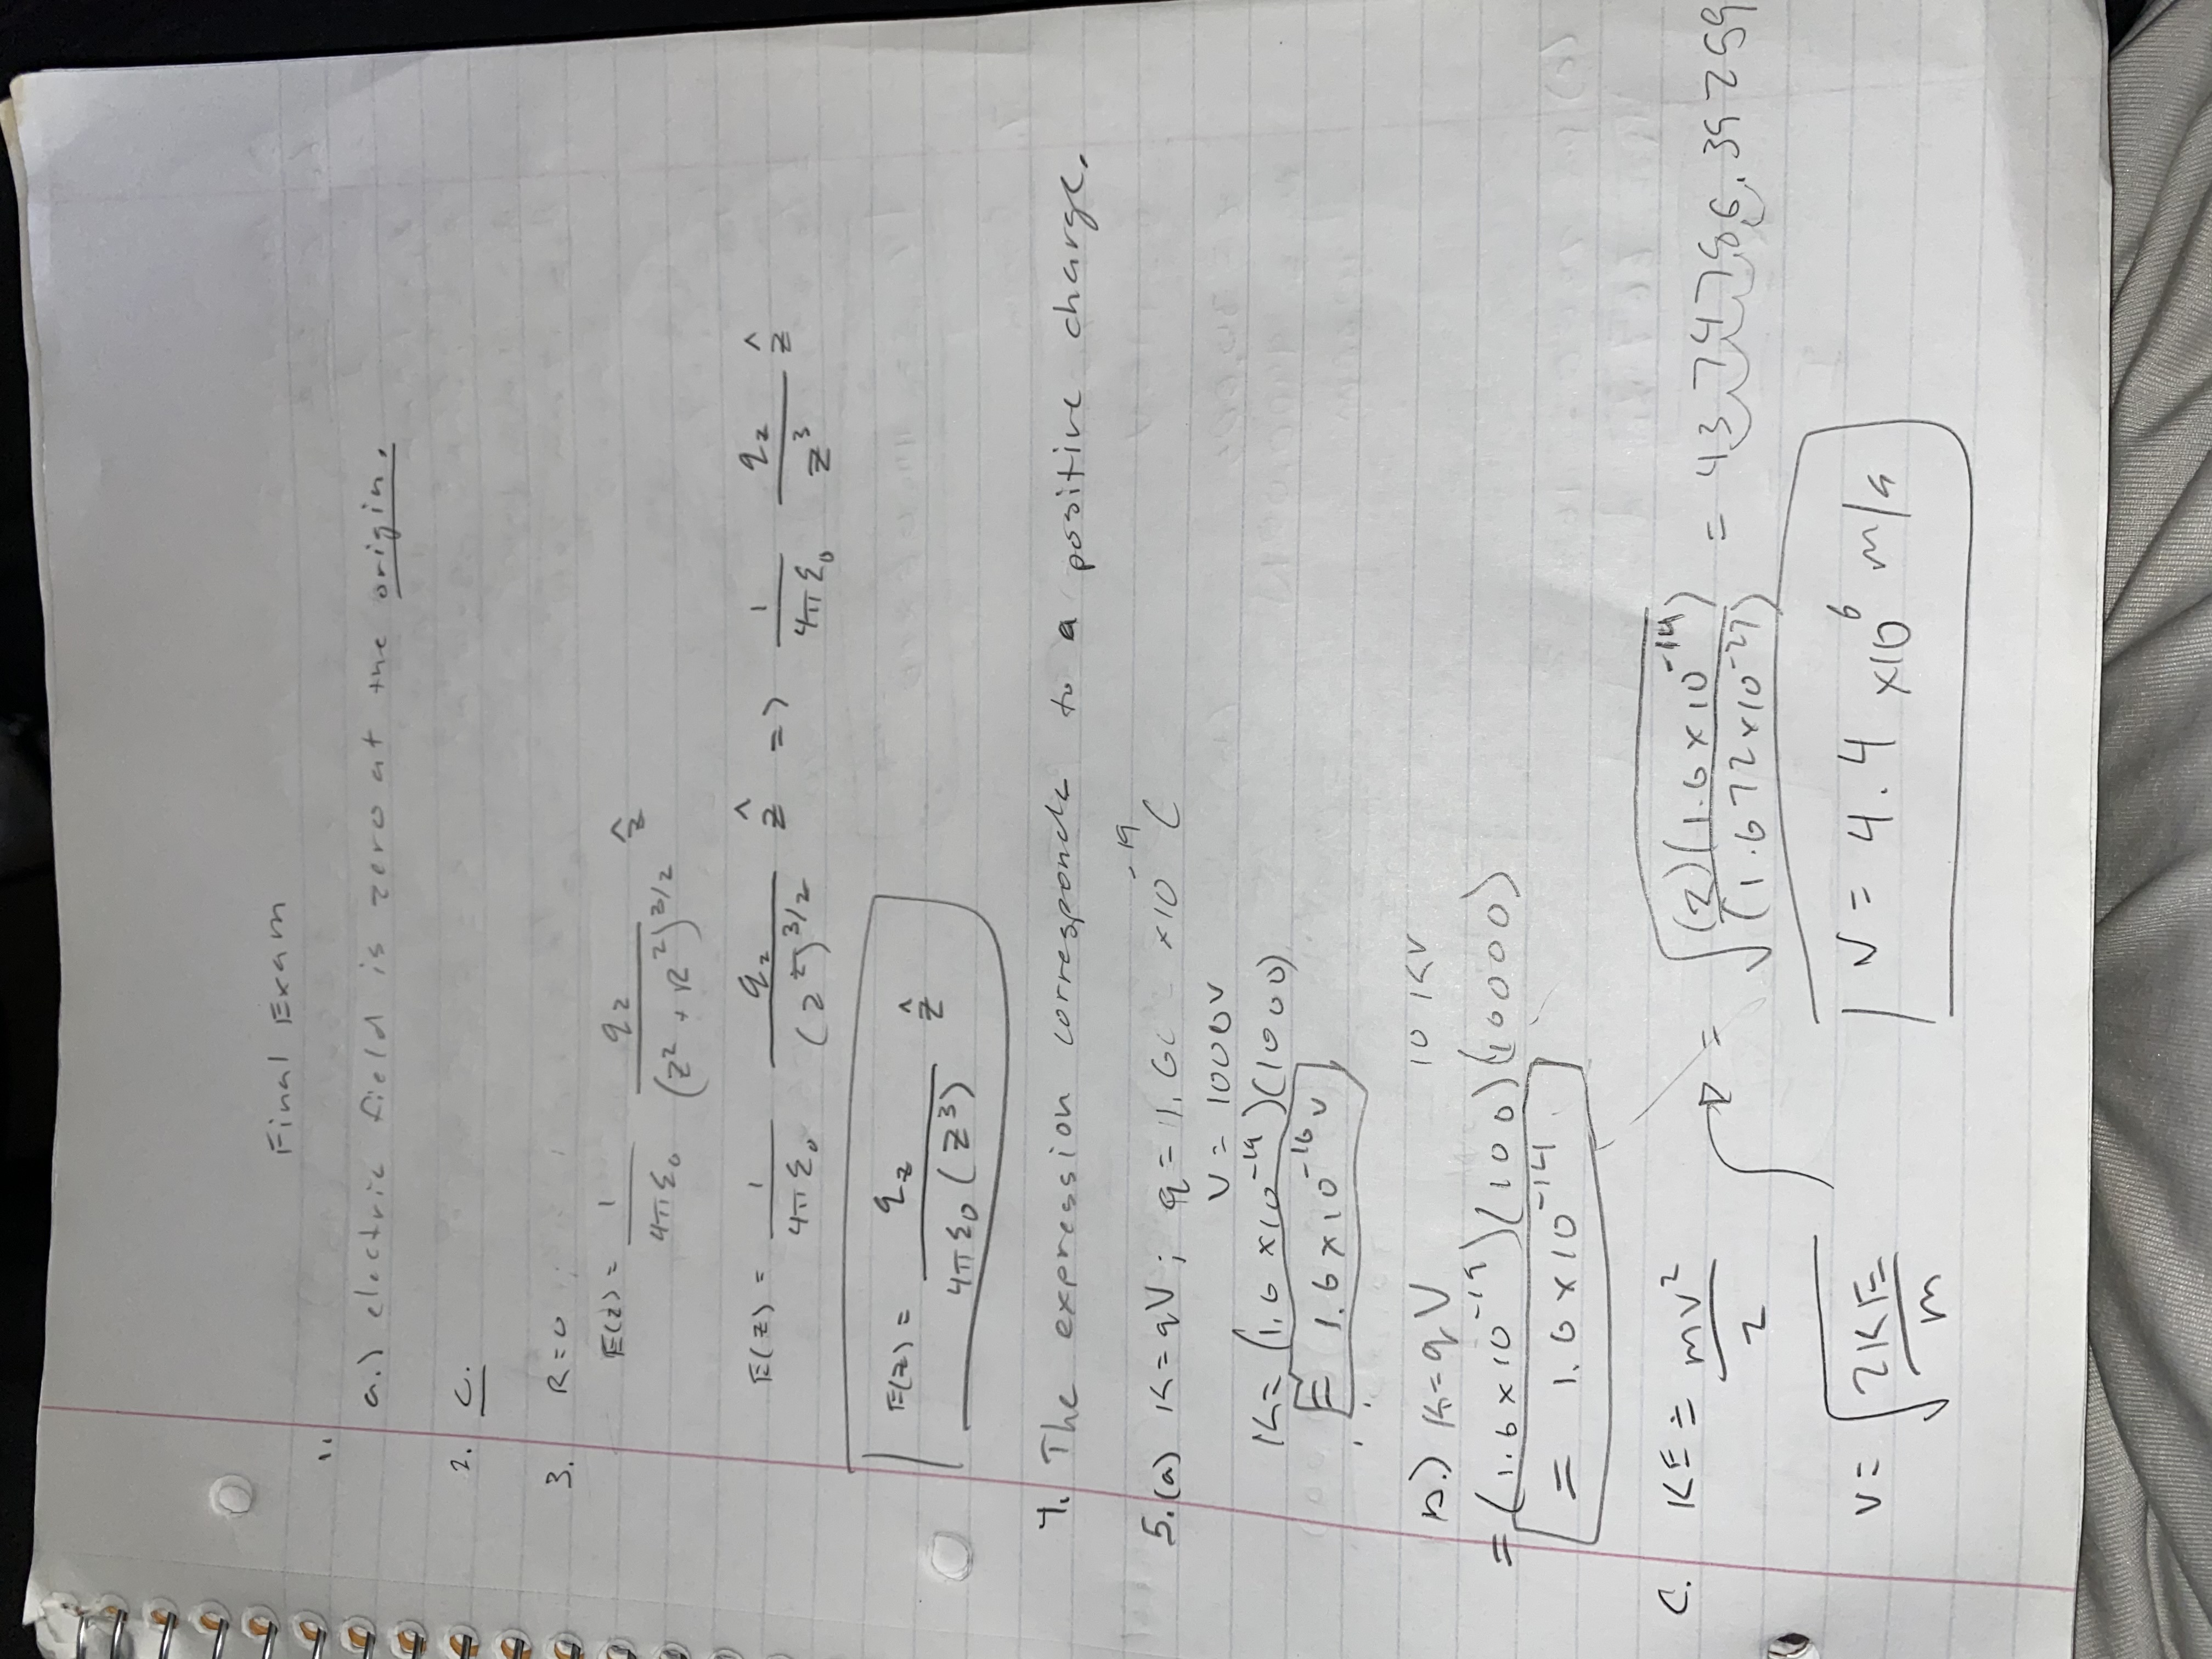 Final Exam
1.
a.) electric field is zero at the origin.
2. C.
3. R=0
E(z) = 1/4πε₀ qz/(z² + R²)^3/2 ẑ
E(z) = 1/4πε₀ qz/(z²)^3/2 ẑ => 1/4πε₀ qz/z³ ẑ
E(z) = qz/4πε₀(z³) ẑ
4. The expression corresponds to a positive charge.
5.(a) K=qV; q= 1.60 ×10^-19 C
V = 1000V
K= (1.6 ×10^-19)(1000)
= 1.6×10^-16 V
b.) K=qV 10 KV
=(1.6×10^-19)(100)(10000)
= 1.6×10^-14
C. KE = mv²/2
= √(2)(1.6×10^-14)/(1.672×10^-27) = 4374786.39259
V= √2KE/m
V = 4.4 ×10^6 m/s